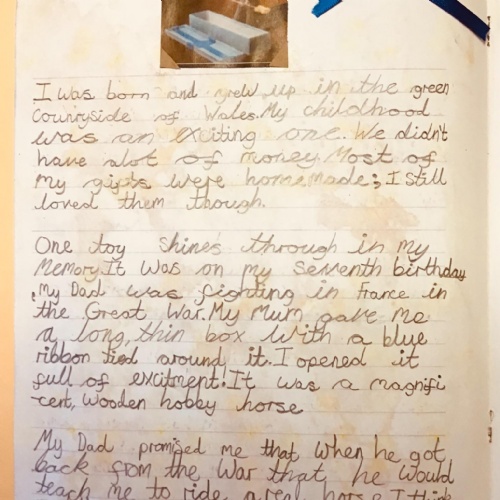 I was born and grew up in the green
Counryside of Wales. My childhood
was an exciting one. We didn't
have alot of money. Most of
my gifts were homemade; I still
loved them though.
One toy shines through in my
Memory. It was on my seventh birthday
. My Dad was fighting in France in
the Great War. My Mum gave me
a long, thin box with a blue
ribbon tied around it. I opened it
full of excitment! It was a magnifi
-cent, wooden hobby horse
My Dad promised me that when he got
back from the War that he would
teach me to ride a real horse. I